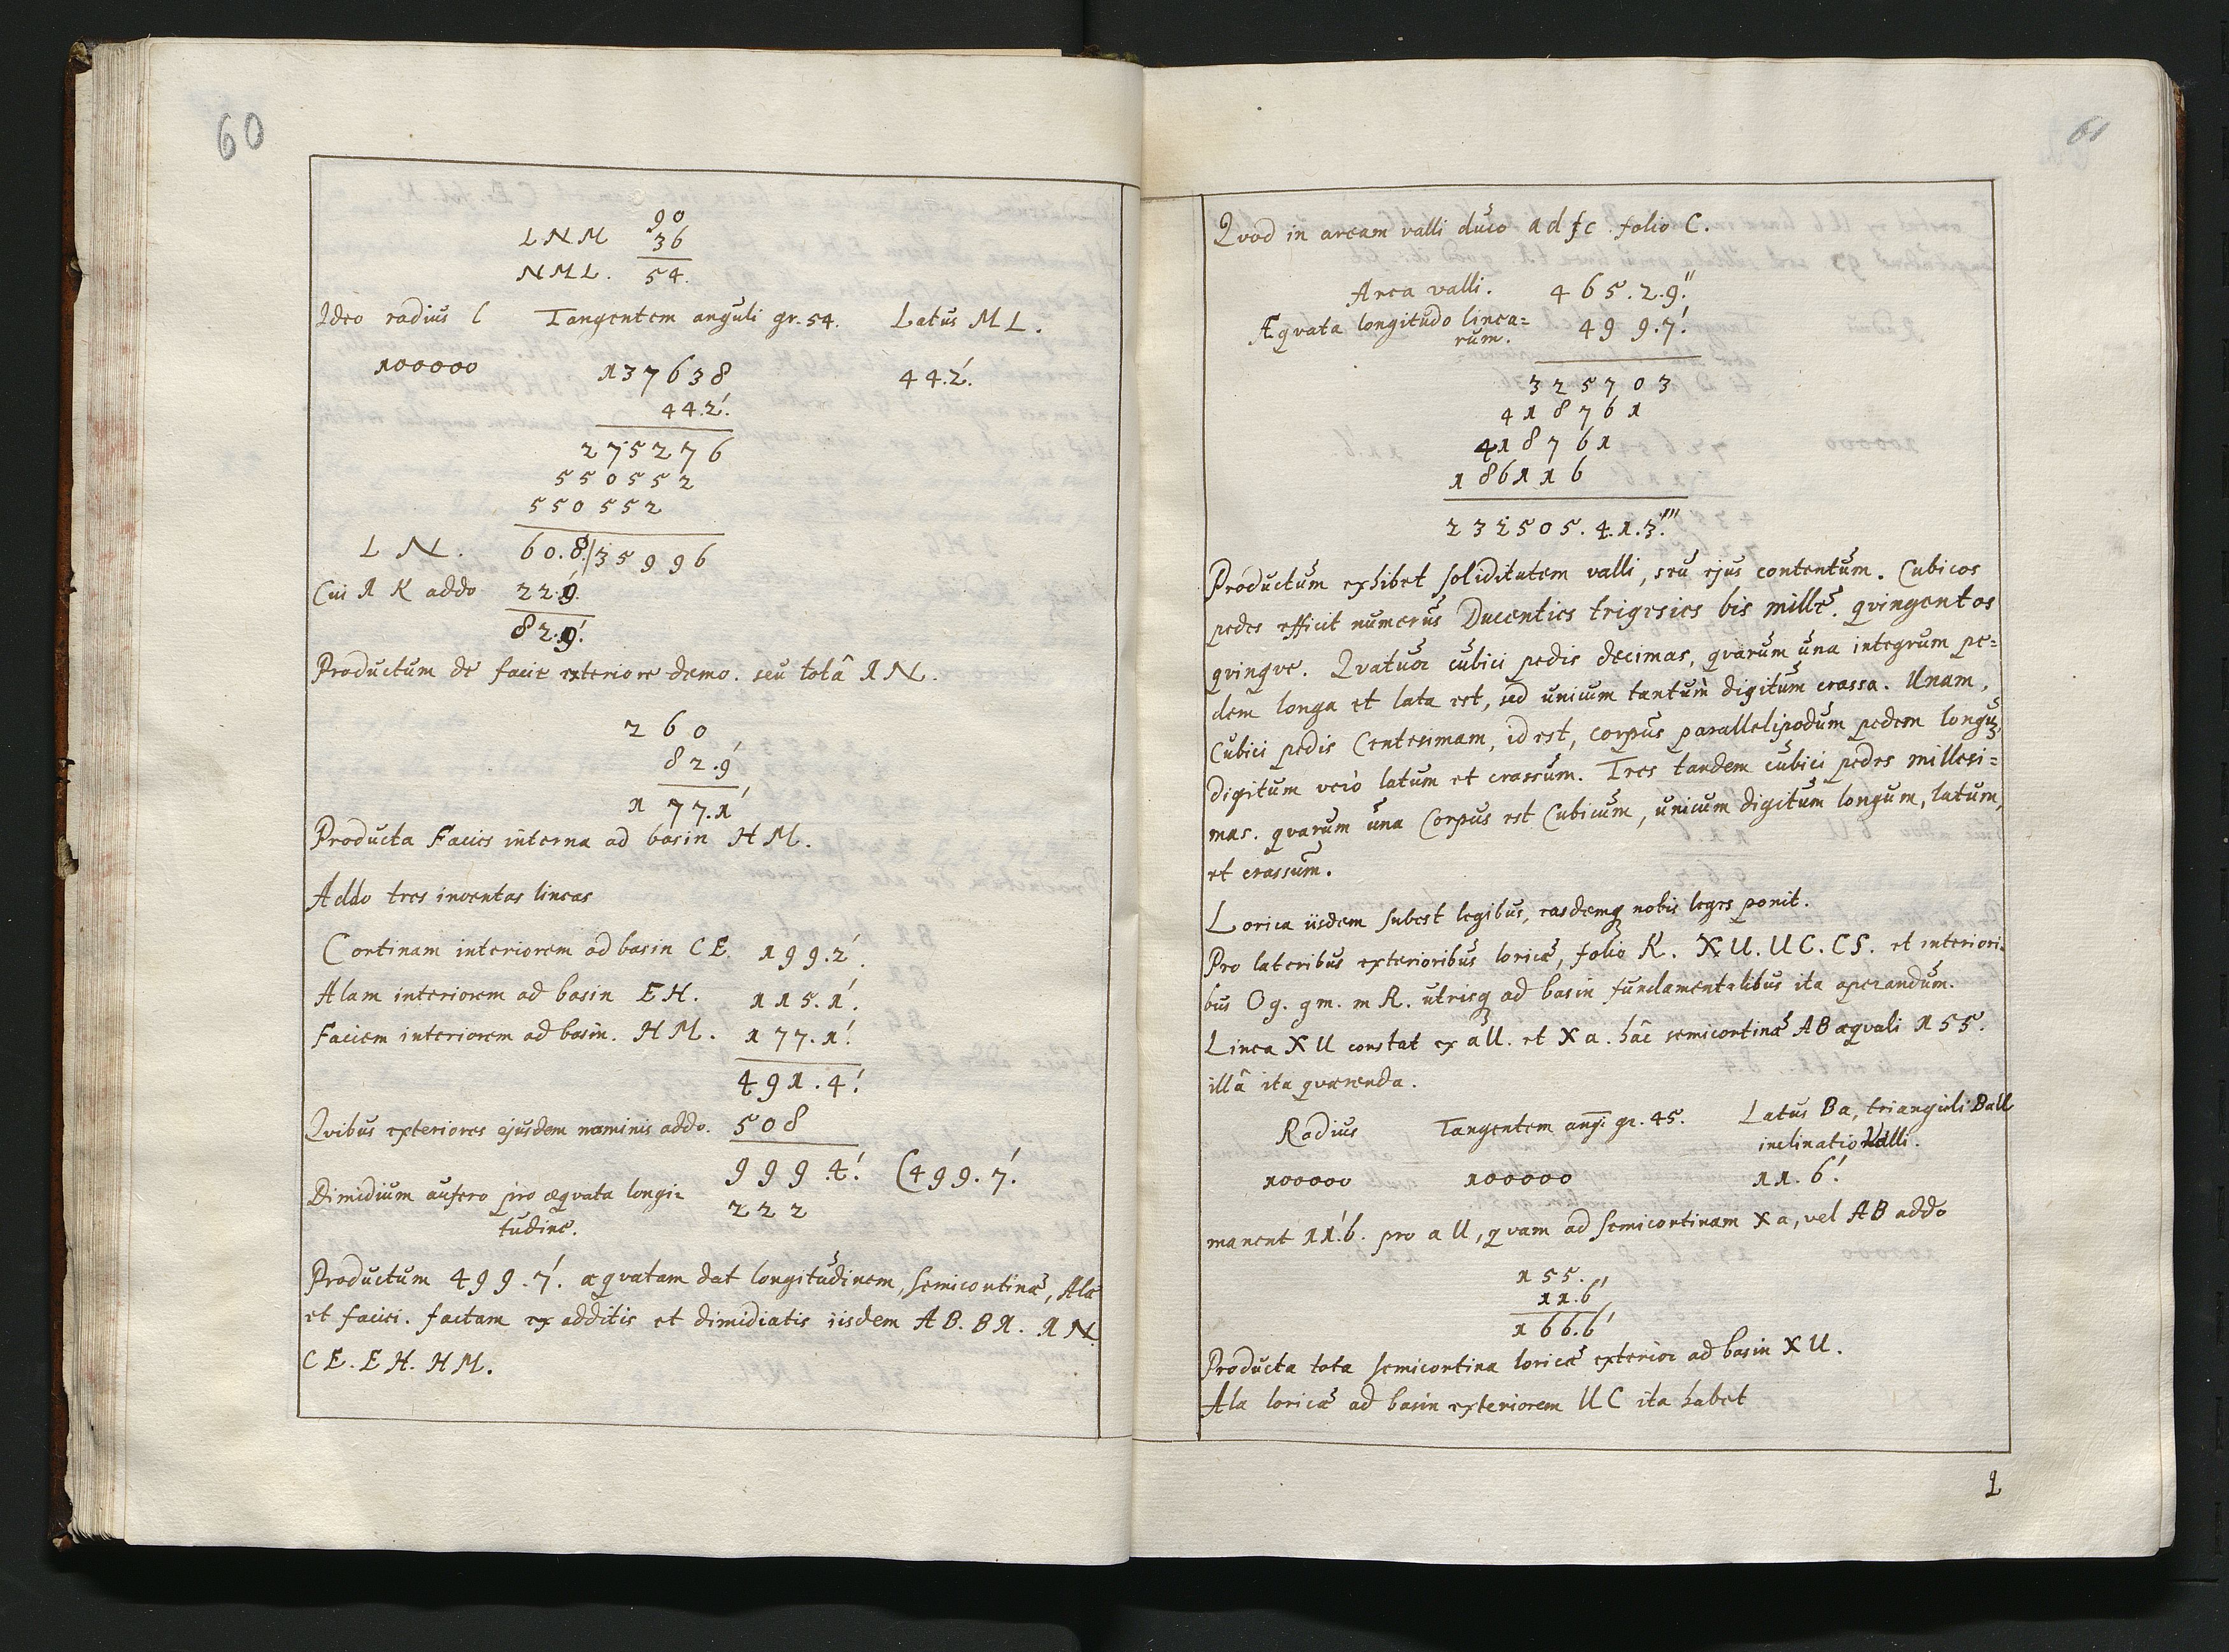 60
90
LNM 36
NML. 54.
Ideo radius l Tangentem anguli gr. 54. Latus ML.
100000 137638 44.2'.
44.2'.
275276
550552
550552
LN. 60.8.'/35996
Cui AK addo 22.1'.
82.9'.
Productum de facie exteriore demo. seu totâ AN.
260
82.9'
177.1'
Producta Facies interna ad basin HM.
Addo tres inventas lineas
Cortinam interiorem ad basin CE. 199.2'.
Alam interiorem ad basin EH. 115.1'.
Faciem interiorem ad basin. HM. 177.1'.
491.4'.
Qvibus exteriores ejusdem nominis addo. 508
999.4'. (499.7'.
Dimidium aufero pro æqvata longi=
222
tudine.
Productum 499.7'. æqvatam dat longitudinem, semicortinæ, Alæ
et faciei. factam ex additis et dimidiatis iisdem AB. BA. AN.
CE. EH. HM.
61
Qvod in aream valli duco adfc. folio C.
Area valli. 465.2.9."
Æqvata longitudo linea= 499.7'.
rum.
325703
418761
418761
186116
232505.4.1.3.'''
Productum exhibet soliditatem valli, seu ejus contentum. Cubicos
pedes efficit numerus Ducenties trigesies bis mille. qvingentos
qvinqve. Qvatuor cubici pedis decimas, qvarum una integrum pe=
dem longa et lata est, sed unicum tantum digitum crassa. Unam,
Cubici pedis Centesimam, id est, corpus parallelipodum pedem longu
digitum verò latum et crassum. Tres tandem cubici pedes millesi=
mas. qvarum una Corpus est Cubicum, unicum digitum longum, latum,
et crassum.
Lorica iisdem subest legibus, easdemq nobis leges ponit.
Pro lateribus exterioribus loricæ, folio K. XU. UC. CS. et interiori=
bus Og. gm. mR. utrisq ad basin fundamentalibus ita operandum.
Linea XU constat ex aU. et Xa. hâc semicortinæ AB æqvali 155.
illâ ita qværenda.
Radius Tangentem angi gr. 45. Latus Ba, trianguli BaU
inclinatio Valli.
100000 100000 11.6'
manent 11'.6. pro aU, qvam ad semicortinam Xa, vel AB addo
155.
11.6'
166.6'
Producta tota semicortina loricæ exterior ad basin XU.
Ala loricæ ad basin exteriorem UC ita habet